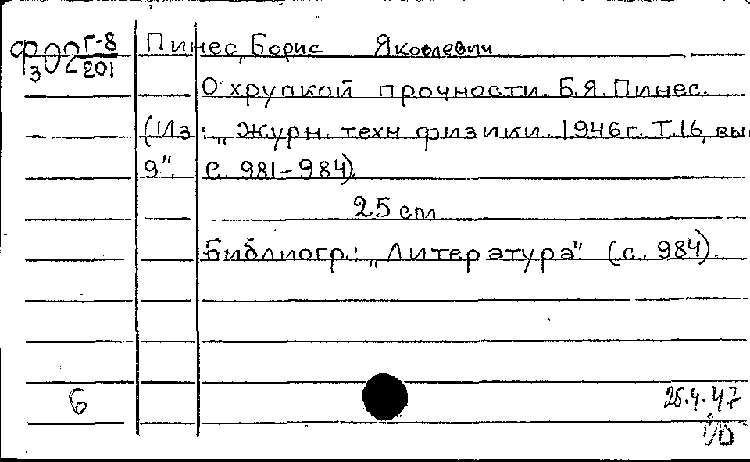 Ф₃02 Г-8/201
Пинес, Борис Яковлевич
О хрупкой прочности. Б.Я. Пинес.
(Из: „Журн. техн физики. 1946г. Т.16, вы
9". с. 981-984).
25 см
Библиогр.: „Литература" (с. 984).
6
26.4.47